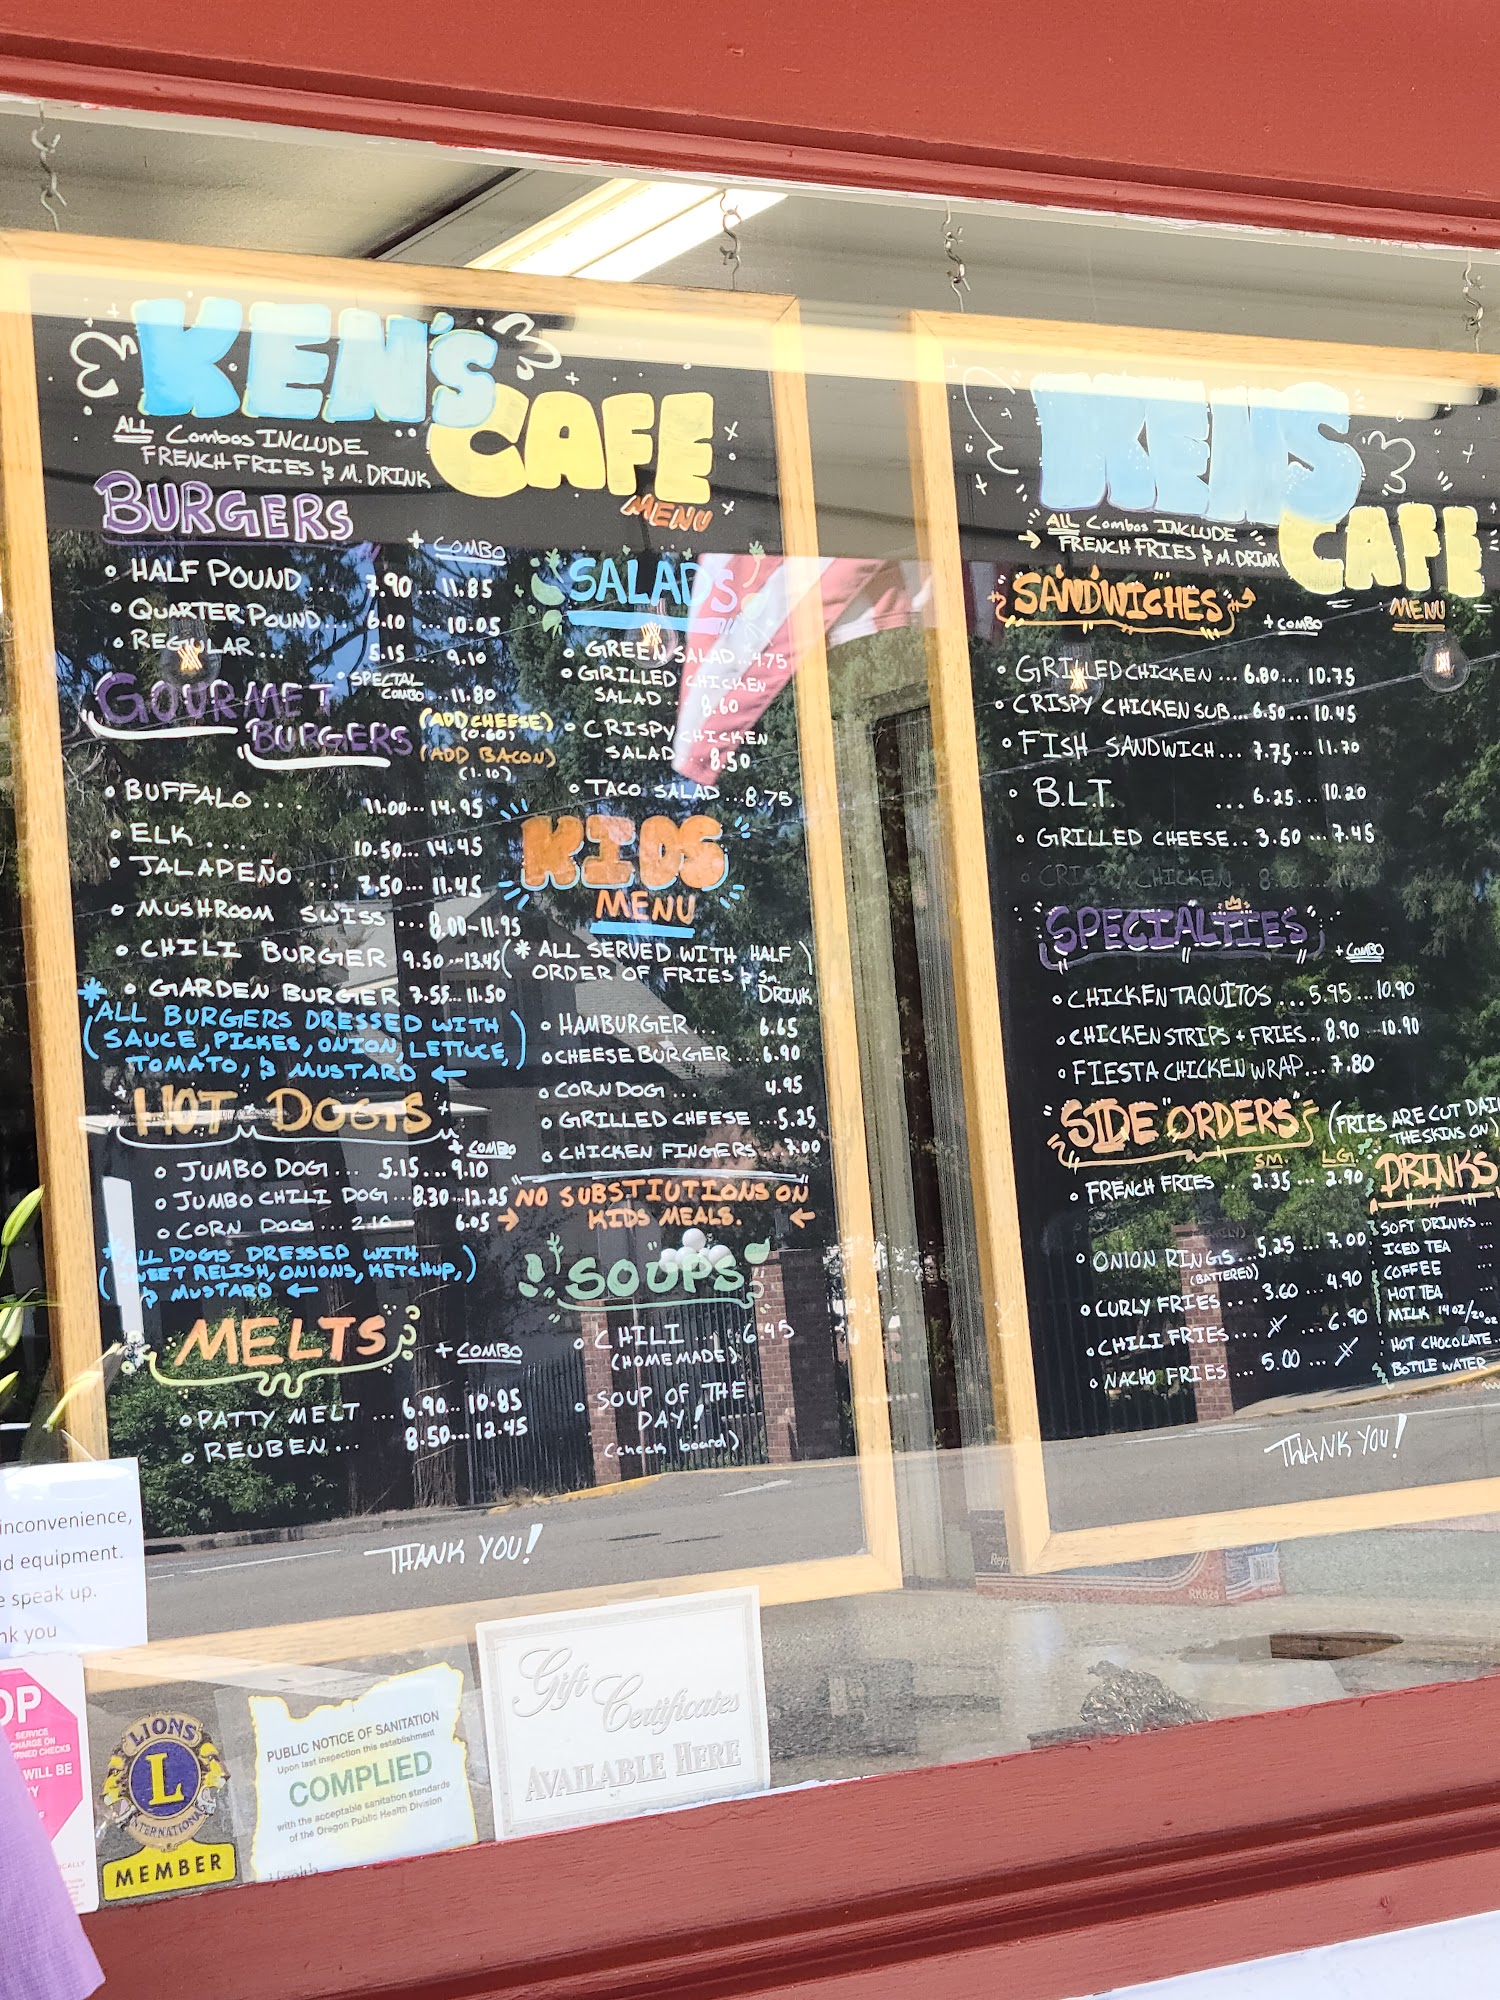 KEN'S
CAFE
MENU
ALL Combos INCLUDE
FRENCH FRIES & M. DRINK
BURGERS
+ COMBO
• HALF POUND... 7.90 ... 11.85
• QUARTER POUND... 6.10 ... 10.05
• REGULAR... 5.15 ... 9.10
• SPECIAL
COMBO...11.80
GOURMET
BURGERS
(ADD CHEESE)
(0.60)
(ADD BACON)
(1.10)
• BUFFALO... 11.00...14.95
• ELK... 10.50...14.45
• JALAPEÑO ... 7.50...11.45
• MUSHROOM SWISS ...8.00-11.95
• CHILI BURGER 9.50...13.45
* • GARDEN BURGER 7.55...11.50
(ALL BURGERS DRESSED WITH
SAUCE, PICKES, ONION, LETTUCE,
TOMATO, & MUSTARD ←)
HOT DOGS
+ COMBO
• JUMBO DOG... 5.15...9.10
• JUMBO CHILI DOG...8.30...12.25
• CORN DOG...2.10 6.05
*ALL DOGS DRESSED WITH
(SWEET RELISH, ONIONS, KETCHUP,)
& MUSTARD ←
MELTS
+ COMBO
• PATTY MELT ...6.90...10.85
• REUBEN... 8.50...12.45
SALADS
• GREEN SALAD...4.75
• GRILLED CHICKEN
SALAD... 8.60
• CRISPY CHICKEN
SALAD 8.50
• TACO SALAD...8.75
KIDS
MENU
(* ALL SERVED WITH HALF
ORDER OF FRIES & Sm.
DRINK)
• HAMBURGER... 6.65
• CHEESE BURGER...6.90
• CORN DOG... 4.95
• GRILLED CHEESE...5.25
• CHICKEN FINGERS...7.00
NO SUBSTIUTIONS ON
→ KIDS MEALS. ←
SOUPS
• CHILI ... 6.45
(HOMEMADE)
• SOUP OF THE
DAY!
(check board)
THANK YOU!
KENS
CAFE
MENU
ALL Combos INCLUDE
→ FRENCH FRIES & M. DRINK
SANDWICHES
+ COMBO
• GRILLED CHICKEN...6.80...10.75
• CRISPY CHICKEN SUB...6.50...10.45
• FISH SANDWICH...7.75...11.70
• B.L.T. ...6.25...10.20
• GRILLED CHEESE..3.50...7.45
CRISPY CHICKEN...8.00
SPECIALTIES
+ COMBO
• CHICKEN TAQUITOS...5.95...10.90
• CHICKEN STRIPS + FRIES..8.90 10.90
• FIESTA CHICKEN WRAP...7.80
"SIDE "ORDERS"
(FRIES ARE CUT
THE SKINS ON)
SM. LG.
• FRENCH FRIES .. 2.35 ... 2.90
• ONION RINGS...5.25 ... 7.00
(BATTERED)
• CURLY FRIES... 3.60 ... 4.90
• CHILI FRIES... ... 6.90
• NACHO FRIES 5.00 ...
DRINKS
SOFT DRINKS ...
ICED TEA ...
COFFEE ...
HOT TEA ...
MILK 14oz/20oz
HOT CHOCOLATE..
BOTTLE WATER
THANK YOU!
inconvenience,
equipment.
speak up.
you
SERVICE
CHARGE ON
WILL BE
LIONS
L
INTERNATIONAL
MEMBER
PUBLIC NOTICE OF SANITATION
Upon last inspection this establishment
COMPLIED
with the acceptable sanitation standards
of the Oregon Public Health Division
Gift
Certificates
AVAILABLE HERE